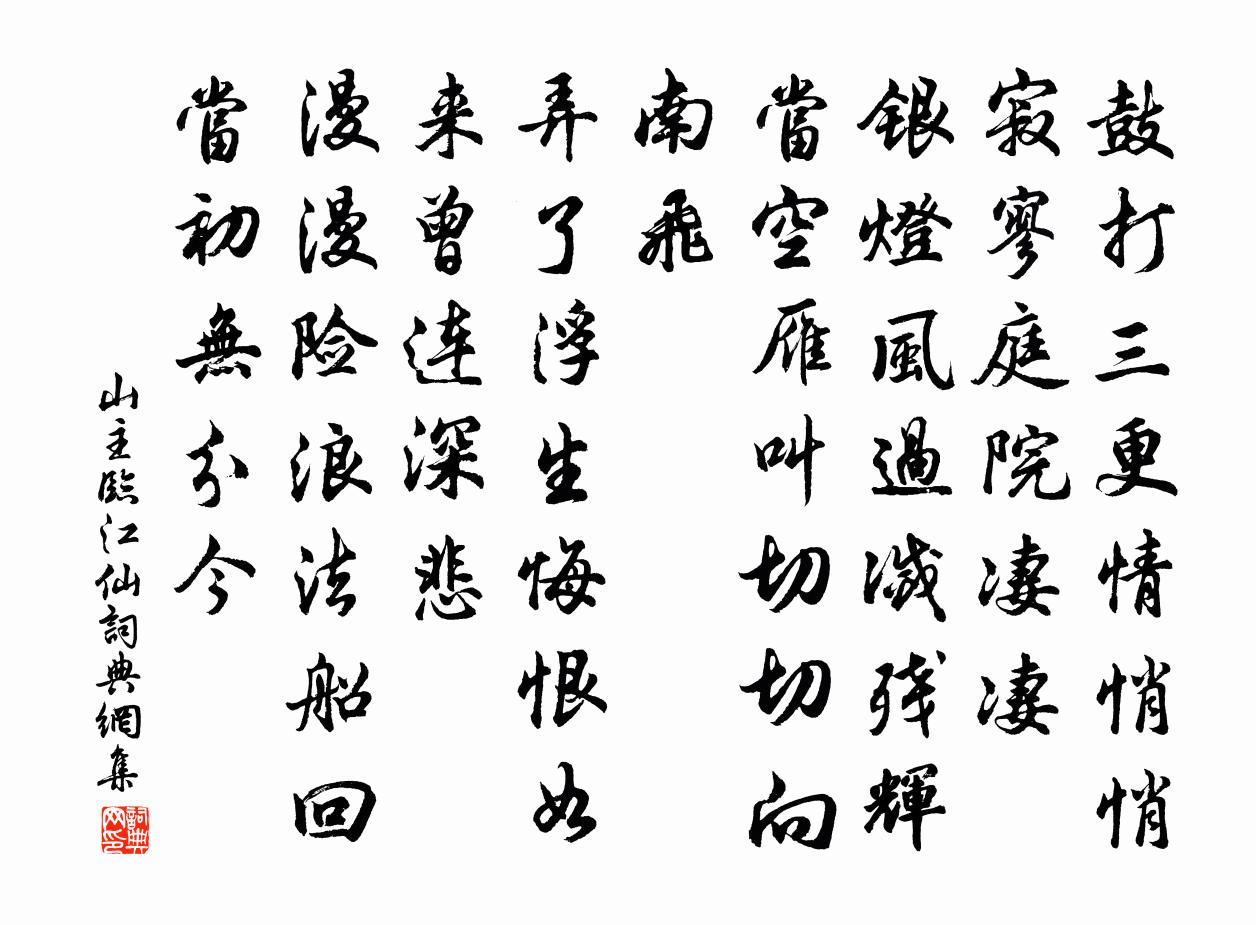 鼓打三更情悄悄
寂寥庭院凄凄
銀燈風過滅残輝
當空雁叫切切向
南飛
弄了浮生悔恨如
来曾連深悲
漫漫險浪法船回
當初無分今
山主臨江仙詞典網集
詞典网印